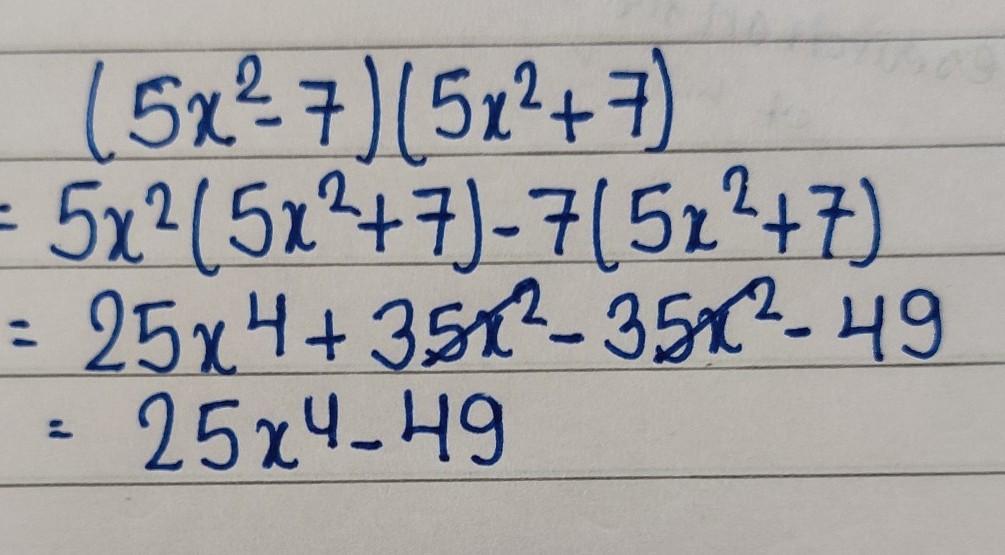 (5x²-7)(5x²+7)
= 5x²(5x²+7)-7(5x²+7)
= 25x⁴+35x²-35x²-49
= 25x⁴-49